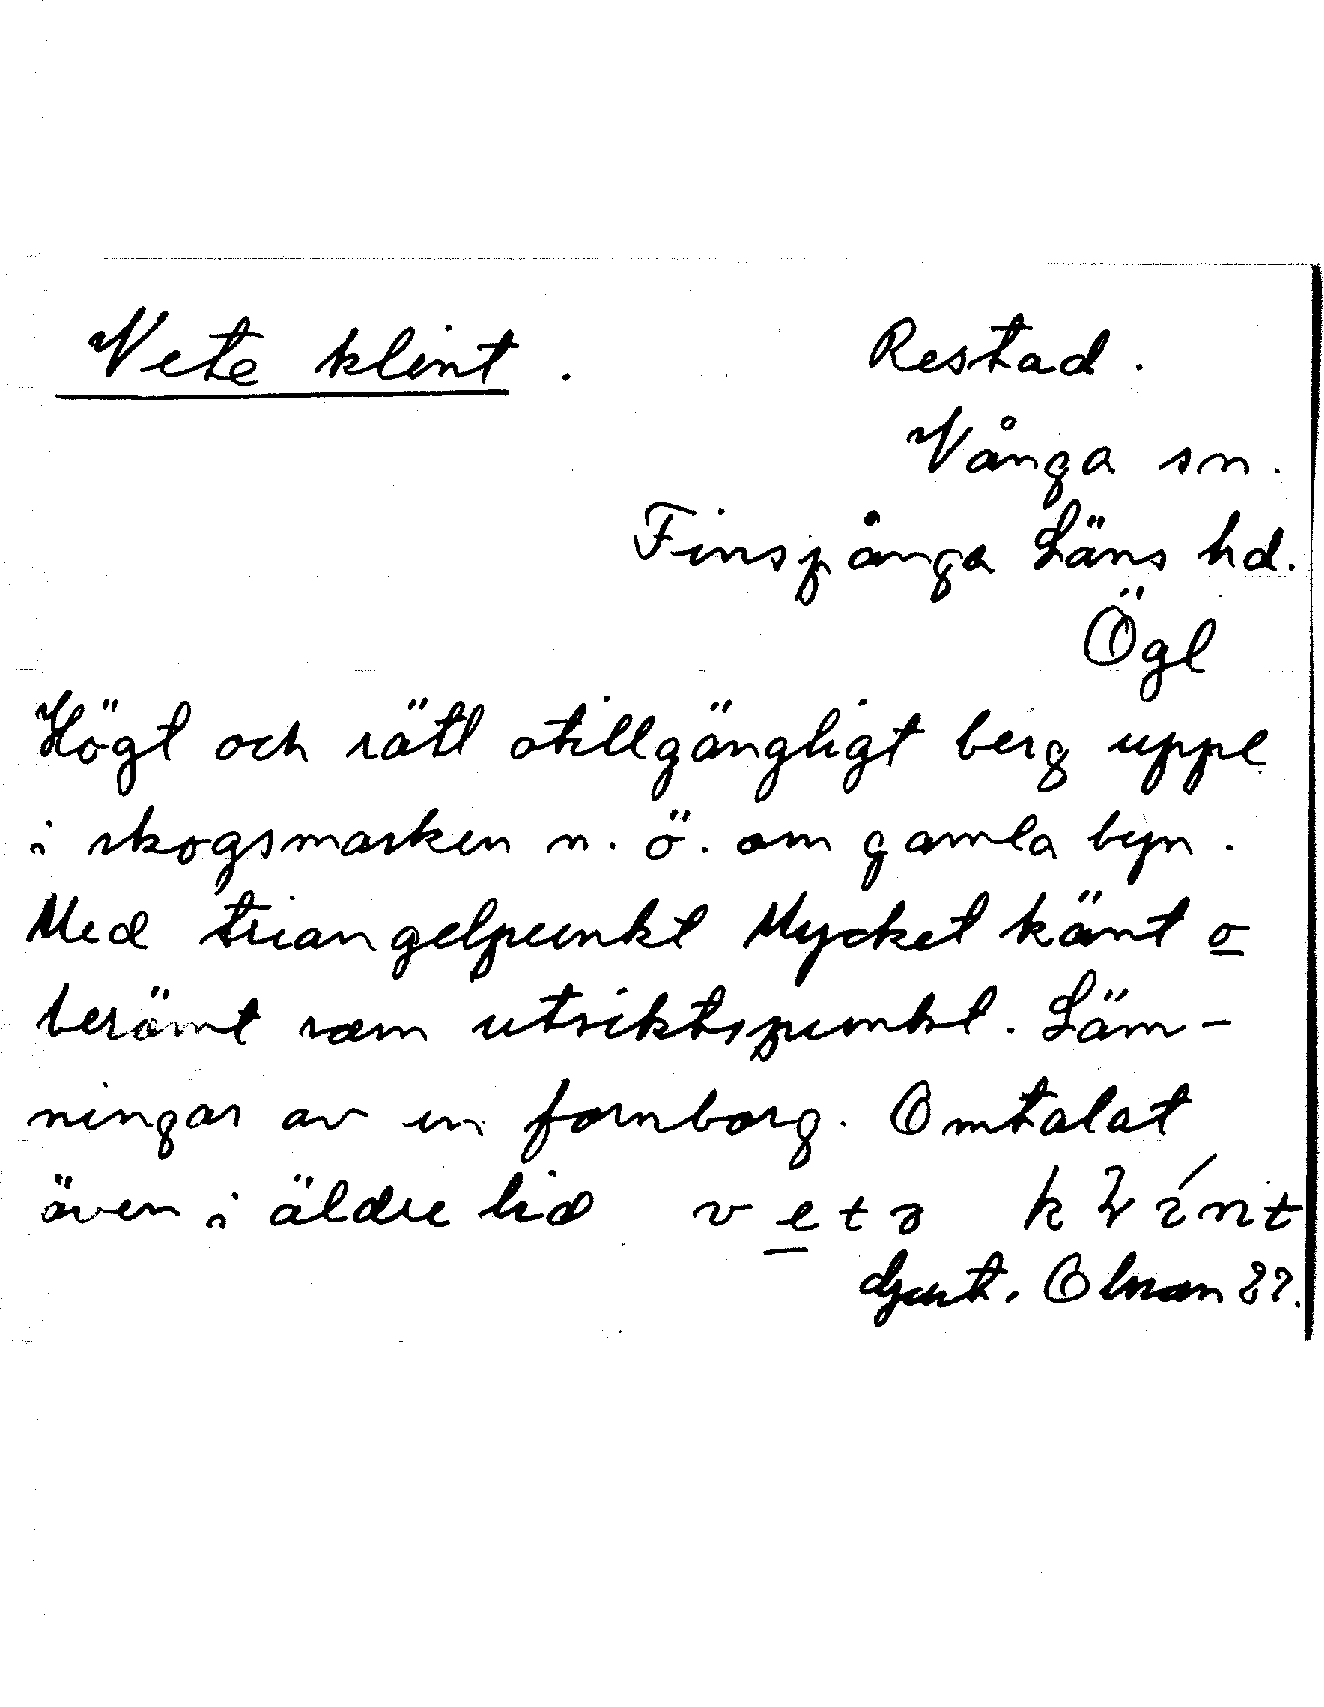 Vete klint. Restad.
Vånga sn.
Finspånga Läns hd.
Ögl
Högt och rätt otillgängligt berg uppe
i skogsmarken n. ö. om gamla byn.
Med triangelpunkt Mycket känt o
berömt som utsiktspunkt. Läm-
ningar av en fornborg. Omtalat
även i äldre tid
Olsson